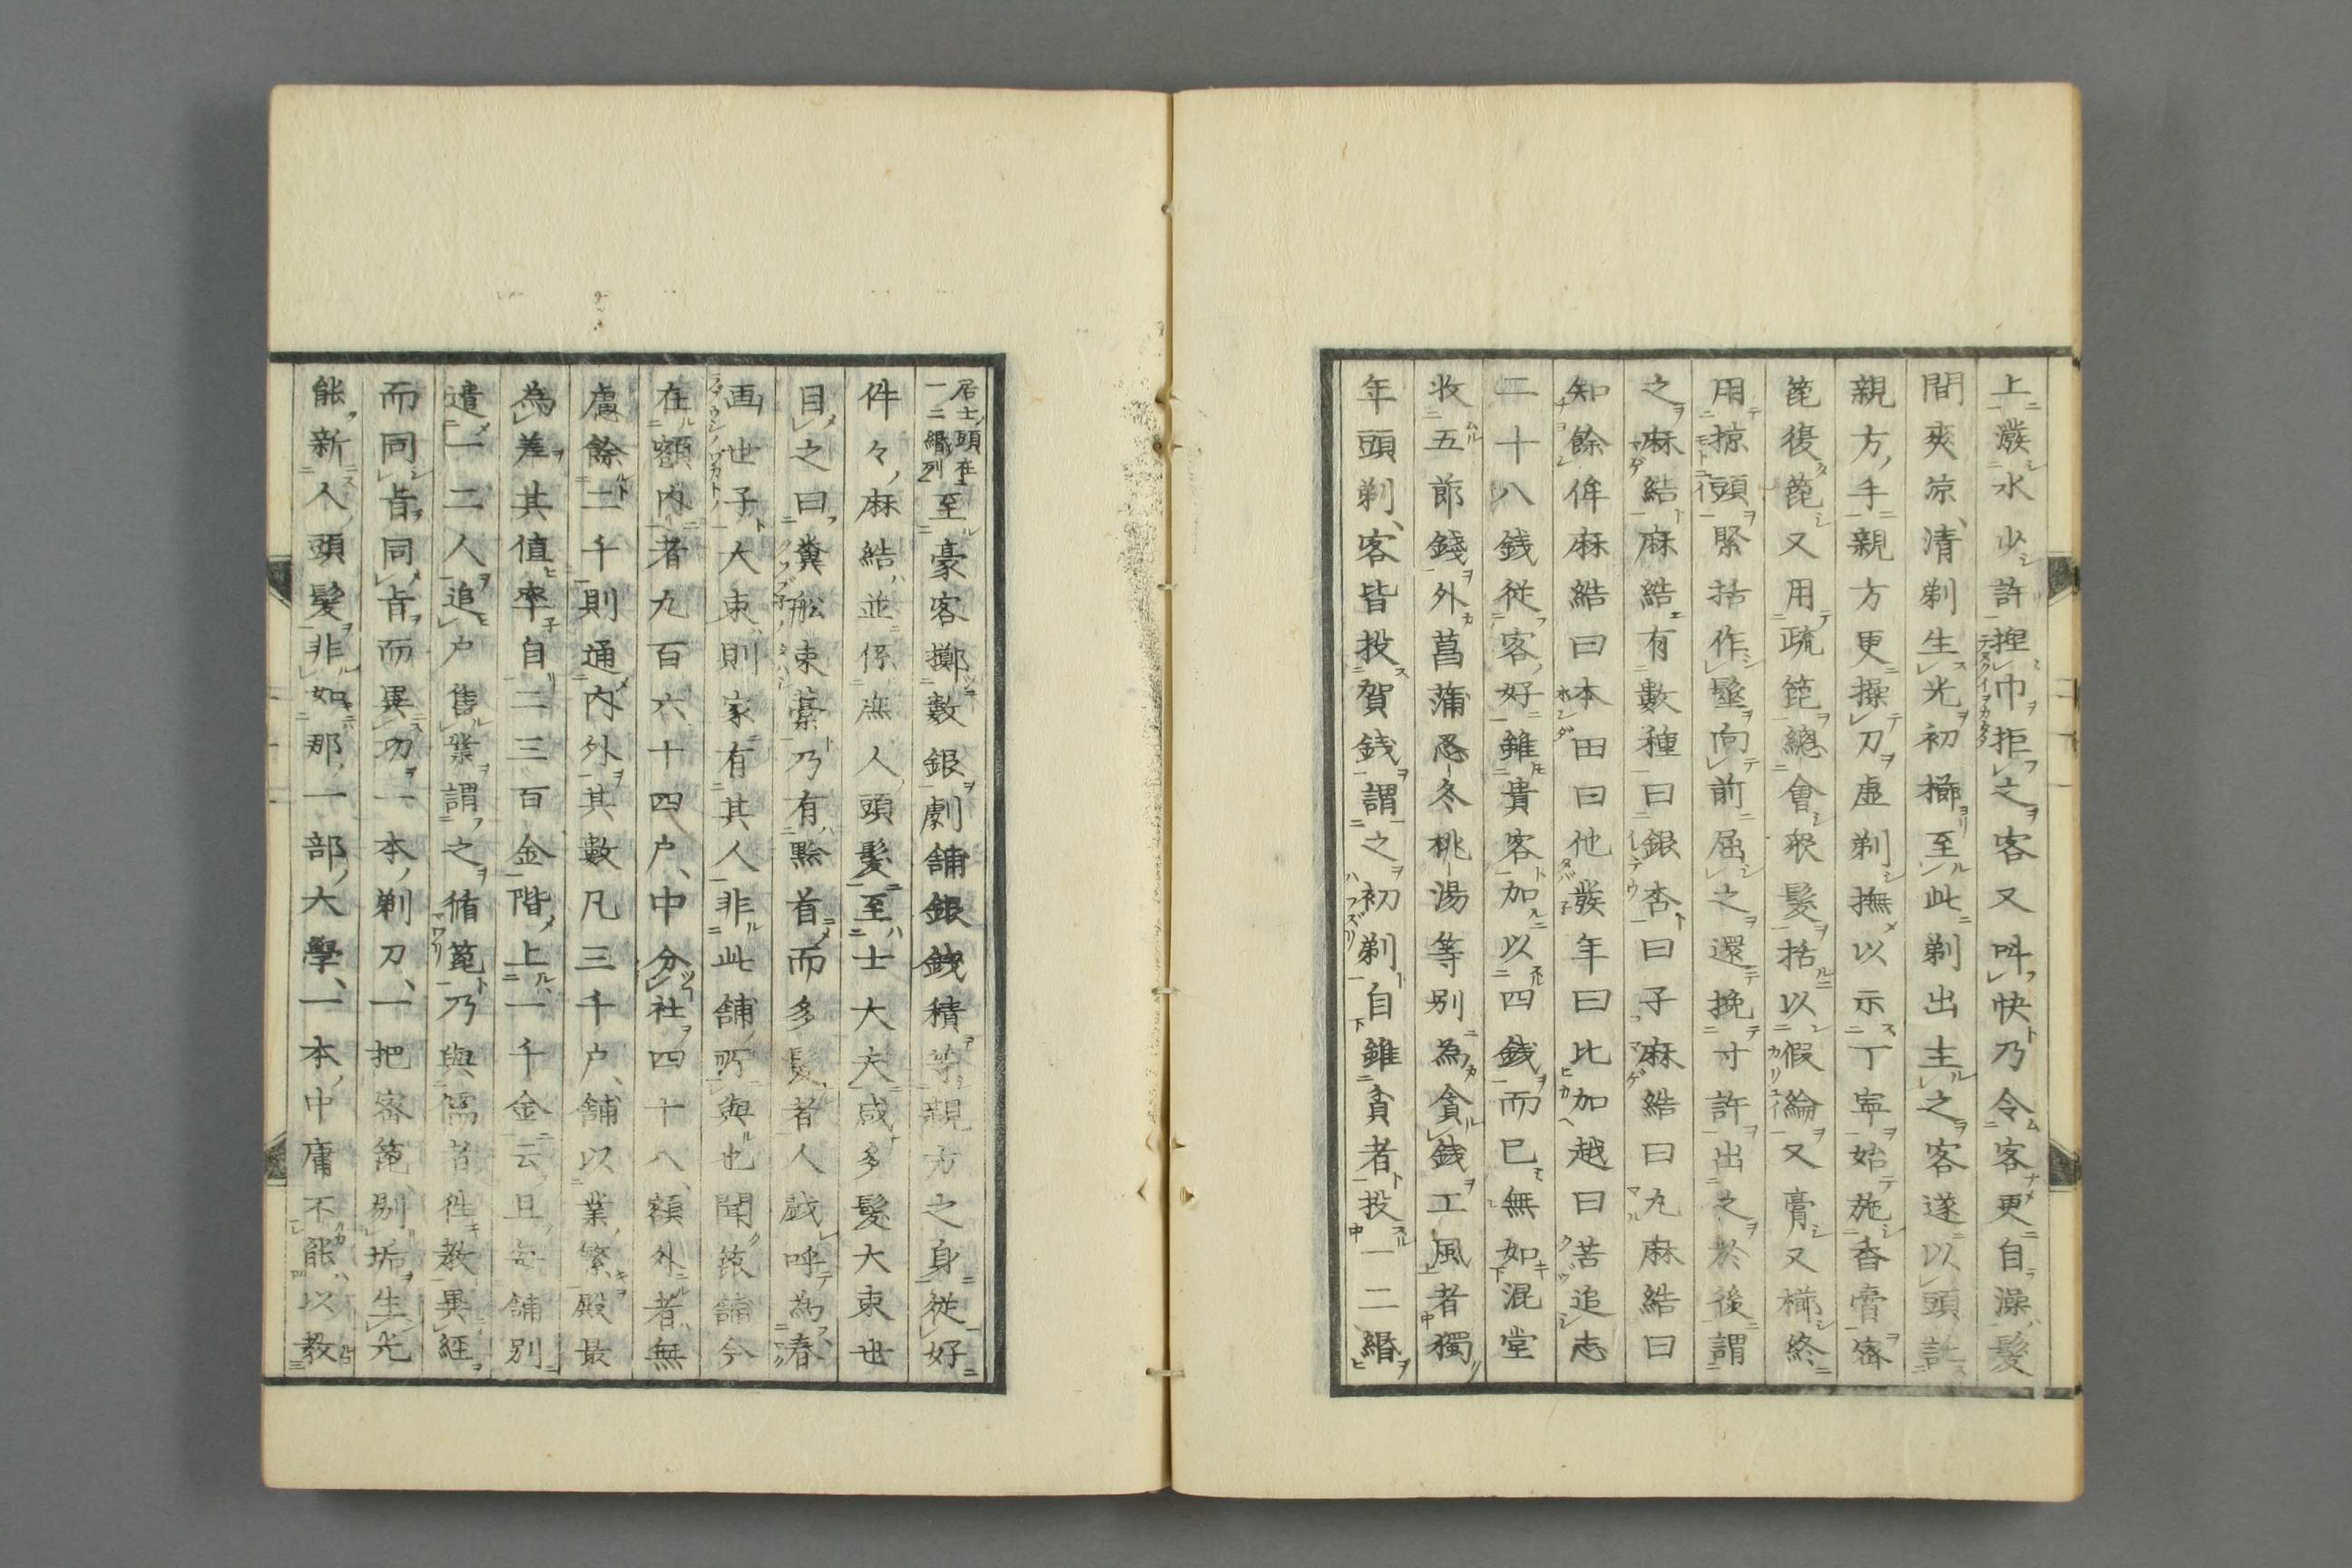 上潑水少許捏巾拒之客又叫快乃令客更自澡髮
間爽凉清剃生光初櫛至此剃出主之客遂以頭託
親方手親方更操刀虛剃撫以示丁寧始施香膏密
篦復篦又用疏篦總會衆髮括以假綸又膏又櫛終
用掠頭緊括作髷向前屈之還挽寸許出之於後謂
之麻結麻結有數種曰銀杏曰子麻結曰丸麻結曰
知餘侔麻結曰本田曰他發年曰比加越曰苦追志
二十八銭從客好雖貴客加以四銭而已無如混堂
收五節錢外菖蒲忍冬桃湯等別為貪銭工風者獨
年頭剃客皆投賀銭謂之初剃自雖貧者投一二緡
居士頭在一二緡列至豪客擲數銀劇舗銀銭積等親方之身從好
件々麻結並係庶人頭髮至士大夫咸多髮大束也
目之曰糞舩束藁乃有黔首而多髮者人戯呼為春
画世子大束則家有其人非此舗所與也聞篦舗今
在額内者九百六十四戸中分社四十八額外者無
慮餘二千則通内外其數凡三千戸舗以業繁殿最
為差其值率自二三百金階上一千金云且每舗別
遣一二人追戸售業謂之循篦乃與儒者徃教異經
而同旨同旨而異功一本剃刀一把密篦剔垢生光
能新人頭髮非如那一部大學一本中庸不能以教